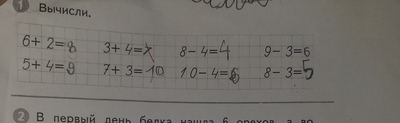 1 Вычисли.
6+ 2=8 3+ 4=7 8-4=4 9-3=6
5+ 4=9 7+ 3=10 10-4=6 8-3=5
2 В первый день белка нашла 6 орехов, а во